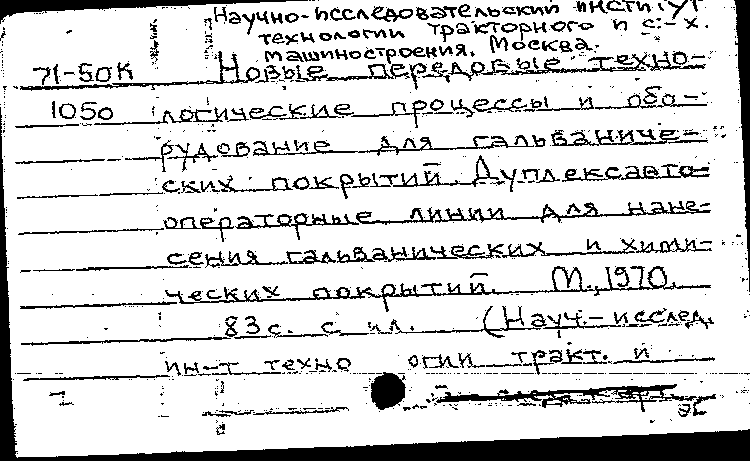 Научно-исследовательский институт
технологии тракторного и с.-х.
машиностроения. Москва.
71-50К Новые передовые техно-
1050 логические процессы и обо-
рудование для гальваниче-
ских покрытий. Дуплексавто-
операторные линии для нане-
сения гальванических и хими-
ческих покрытий. М., 1970.
83с. с ил. (Науч.-исслед.
ин-т техно огии тракт. и